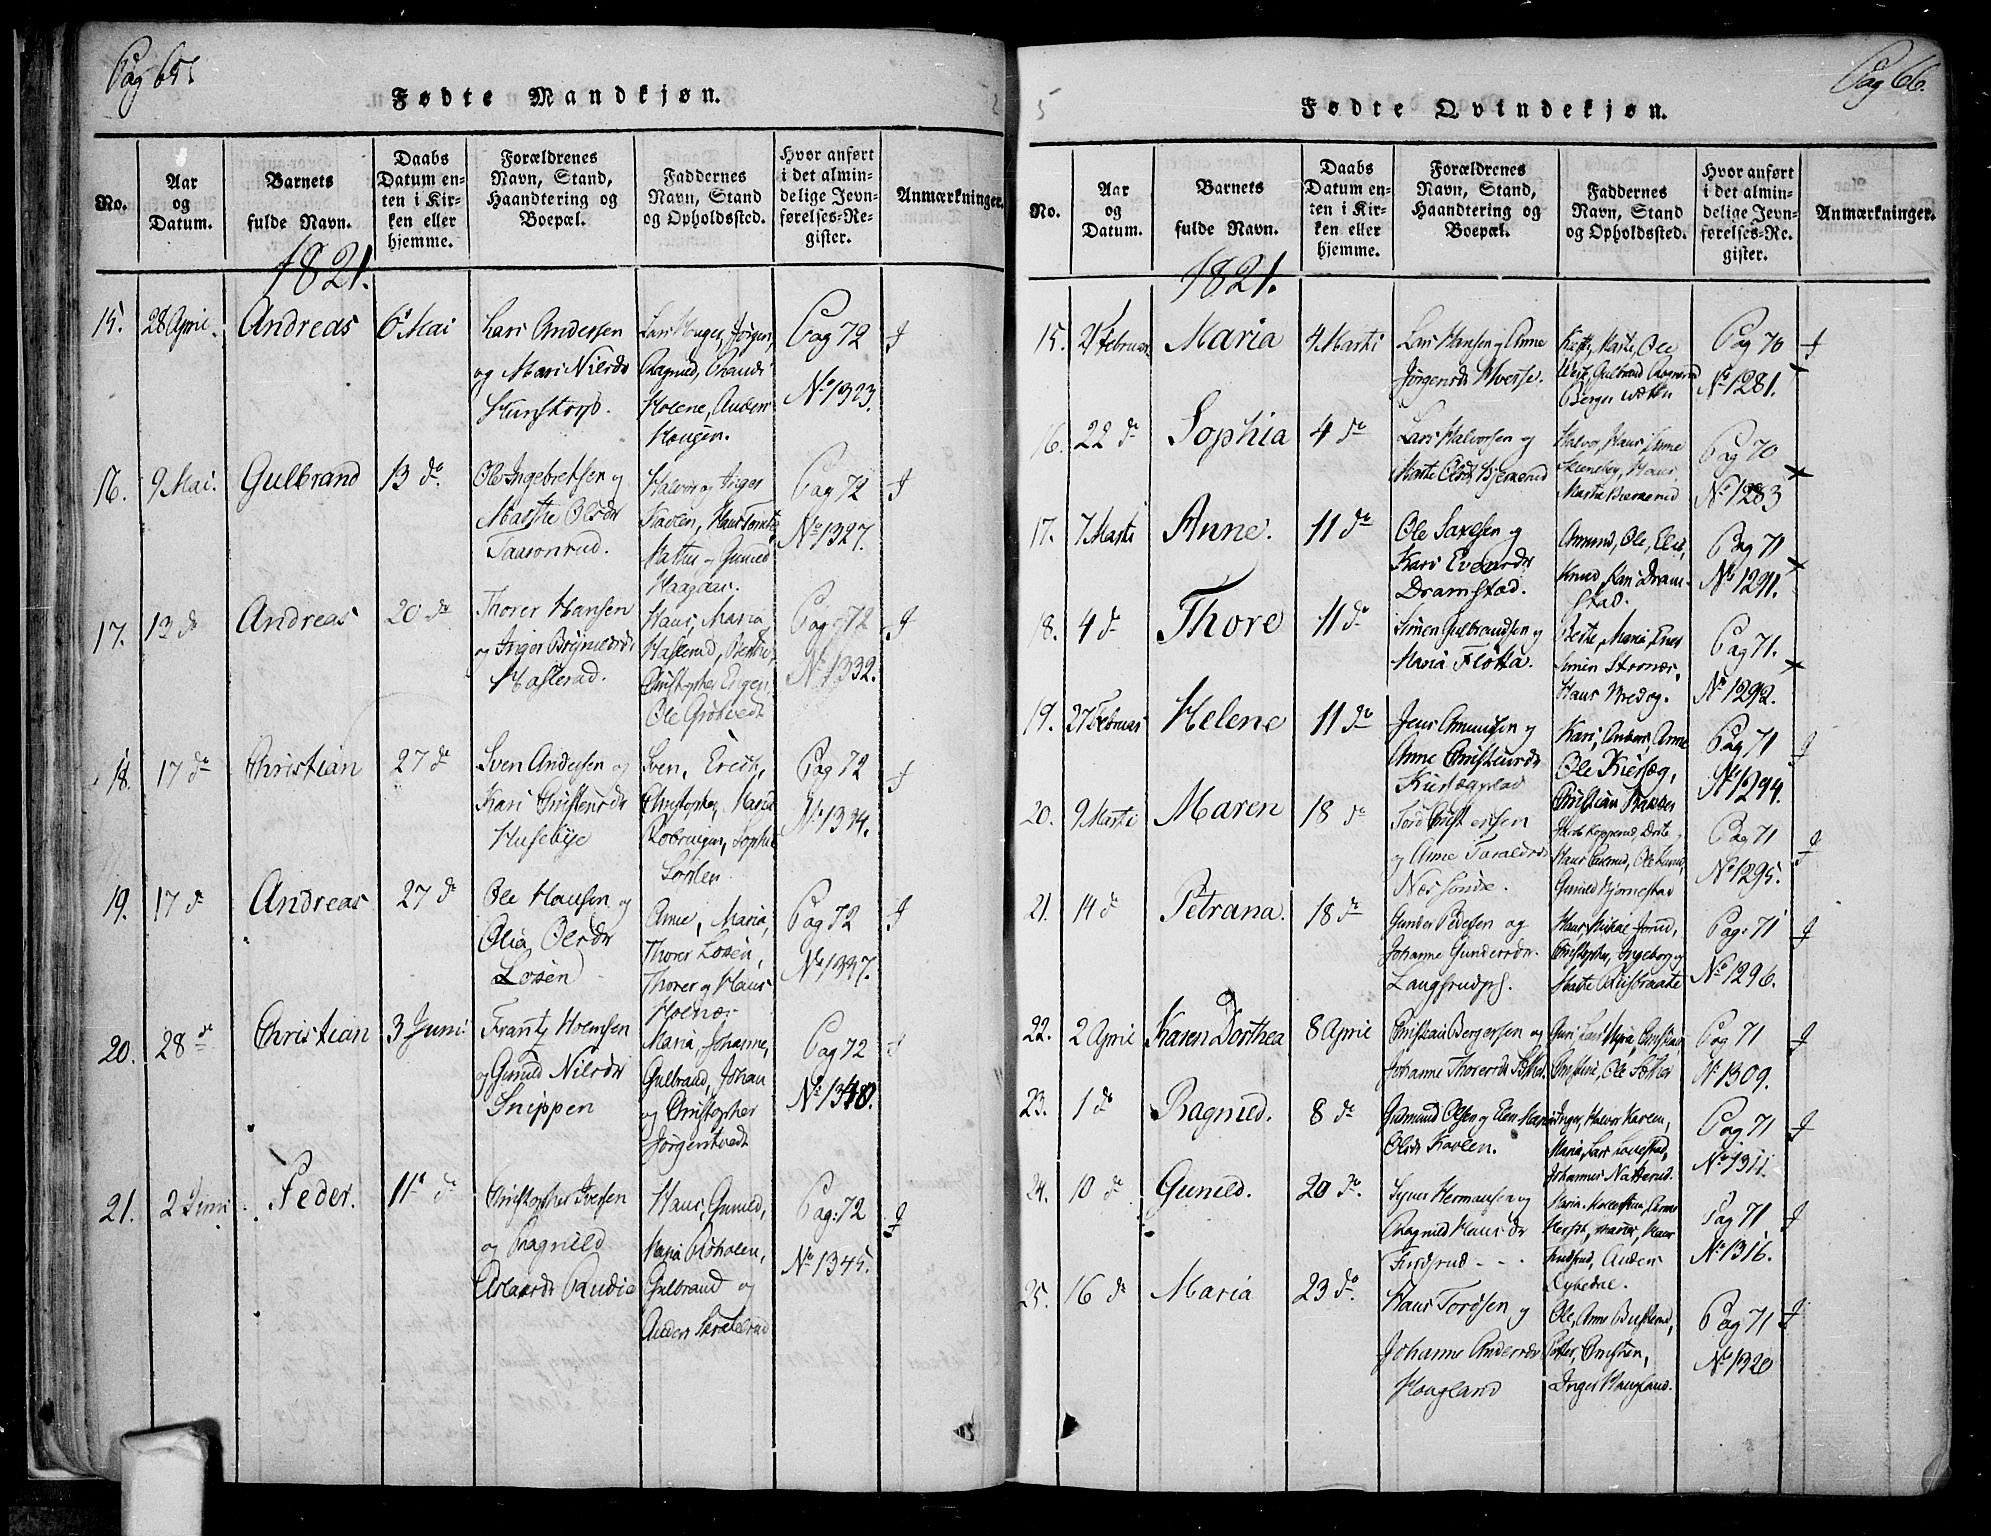 Pag 65.
Fødte Mandkjøn.
No.
Aar
og
Datum.
Barnets
fulde Navn.
Daabs
Datum en-
ten i Kir-
ken eller
hjemme.
Forældrenes
Navn, Stand,
Haandtering og
Boepæl.
Faddernes
Navn, Stand
og Opholdssted.
Hvor anført
i det almin-
delige Jevn-
førelses-Re-
gister.
Anmærkninger.
1821.
15.
28 April.
Andreas
6 Mai
Lars Andersen
og Mari Nilsdr
Lars Jørgen,
Ragnild,
Holene, Anders
Haugen.
Pag 72
No 1323.
16.
9 Mai.
Gulbrand
13 do
Ole Ingebretsen og
Marthe Olsdr
Taasonrud.
Halvor og Inger
Kavlen, Hans Tomte,
og Gunild
Haagaar.
Pag 72
No 1327.
17.
13 do
Andreas
20 do
Thorer Hansen
og Inger
Haslerud.
Hans, Maria
Haslerud, Berthe,
Christopher Engen,
Ole Grøtvedt
Pag 72
No 1332.
18.
17 do
Christian
27 do
Sven Andersen og
Kari Christensdr
Husebye
Sven, Erich,
Christopher, Maria
Robruigen, Sophie
Sørlen
Pag 72
No 1334.
19.
17 do
Andreas
27 do
Ole Hansen og
Olia Olsdr
Losen
Anne, Maria,
Thorer Losen,
Thorer og Hans
Holnæs
Pag 72
No 1337.
20.
28 do
Christian
3 Juni
Frantz Holmsen
og Gunild Nilsdr
Snippen
Maria, Johanne,
Gulbrand, Johan
og Christopher
Jørgentvedt
Pag 72
No 1340.
21.
2 Juni
Peder.
11 do
Christopher Iversen
og Ragnild
Aslaksdr Rudie
Hans, Gunild,
Maria Røholen,
Gulbrand og
Anders
Pag: 72
No 1345.
Pag 66.
Fødte Qvindekjøn.
No.
Aar
og
Datum.
Barnets
fulde Navn.
Daabs
Datum en-
ten i Kir-
ken eller
hjemme.
Forældrenes
Navn, Stand,
Haandtering og
Boepæl.
Faddernes
Navn, Stand
og Opholdssted.
Hvor anført
i det almin-
delige Jevn-
førelses-Re-
gister.
Anmærkninger.
1821.
15.
Februar
Maria
4 Marti
Lars Hansen og Anne
Jørgensdr
Marte, Ole
Gulbrand
Pag 70
No 1281.
16.
22 do
Sophia
4 do
Lars Halvorsen og
Marthe Olsdr Bjerkerud
Halvor, Hans, Anne
Hans
Marthe Bierkerud
Pag 70
No 1283
17.
7 Marti
Anne.
11 do
Ole Saxesen og
Kari Evensdr
Dramstad.
Amund, Ole, Elie,
Knud, Kari Dram-
stad.
Pag 71
No 1291.
18.
4 do
Thore
11 do
Simen Gulbrandsen og
Maria Flotta.
Berte, Maria, Enes
Simen Stornæs,
Hans
Pag 71.
No 1292.
19.
27 Februar
Helene
11 do
Jens Amundsen og
Anne Christensdr
Kari, Anders, Anne
Ole Kiersæg,
Christian
Pag 71
No 1294.
20.
9 Marti
Maren
18 do
Tord Christensen
og Anne Taraldsdr
Næs
Dorte,
Hans Ole
Gunild Bjørnestad
Pag 71
No 1295.
21.
14 do
Petrana.
18 do
Gunder Pedersen og
Johanne Gundersdr
Langsrud
Hans, Michal
Christopher, Ingeborg og
Marte
Pag: 71
No 1296.
22.
2 April
Karen Dorthea
8 April
Christian Bergersen og
Johanne Thoresdr
Guri, Lars Myra, Christian,
Christine, Ole
Pag 71
No 1309.
23.
1 do
Ragnild.
8 do
Gudmund Olsen og Elen Maria
Olsdr Kavlen.
Inger, Halvor Kavlen,
Maria, Lars
Johannes Natterud.
Pag 71
No 1311.
24.
10 do
Gunild.
20 do.
Syver Hermansen og
Ragnild Hansdr
Findsrud
Maria, Anne
Anders
Lybedal.
Pag 71
No 1316.
25.
16 do
Maria
23 do.
Hans Tordsen og
Johanne Andersdr
Haugland
Ole, Anne Busterud,
Peter, Christen,
Inger Haugland.
Pag 71
No 1320